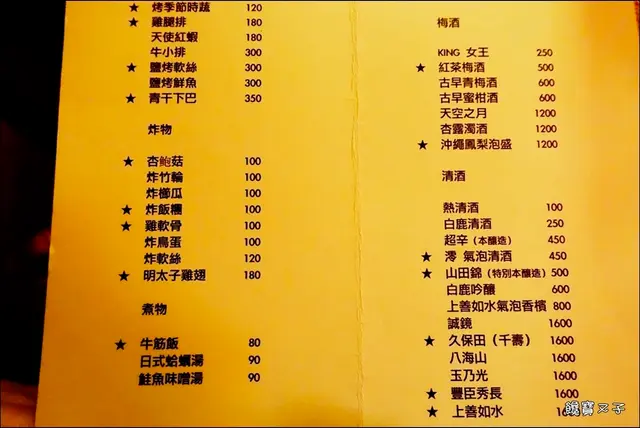 ★ 烤季節時蔬 120
★ 雞腿排 180
天使紅蝦 180
牛小排 300
★ 鹽烤軟絲 300
鹽烤鮮魚 300
★ 青干下巴 350
炸物
★ 杏鮑菇 100
炸竹輪 100
炸櫛瓜 100
★ 炸飯糰 100
★ 雞軟骨 100
炸鳥蛋 100
炸軟絲 120
★ 明太子雞翅 180
煮物
★ 牛筋飯 80
日式蛤蠣湯 90
鮭魚味噌湯 90
梅酒
KING 女王 250
★ 紅茶梅酒 500
古早青梅酒 600
古早蜜柑酒 600
天空之月 1200
杏露濁酒 1200
★ 沖繩鳳梨泡盛 1200
清酒
熱清酒 100
白鹿清酒 250
超辛（本釀造） 450
★ 澪 氣泡清酒 450
★ 山田錦（特別本釀造） 500
白鹿吟釀 600
上善如水氣泡香檳 800
誠鏡 1600
★ 久保田（千壽） 1600
八海山 1600
玉乃光 1600
★ 豐臣秀長 1600
★ 上善如水